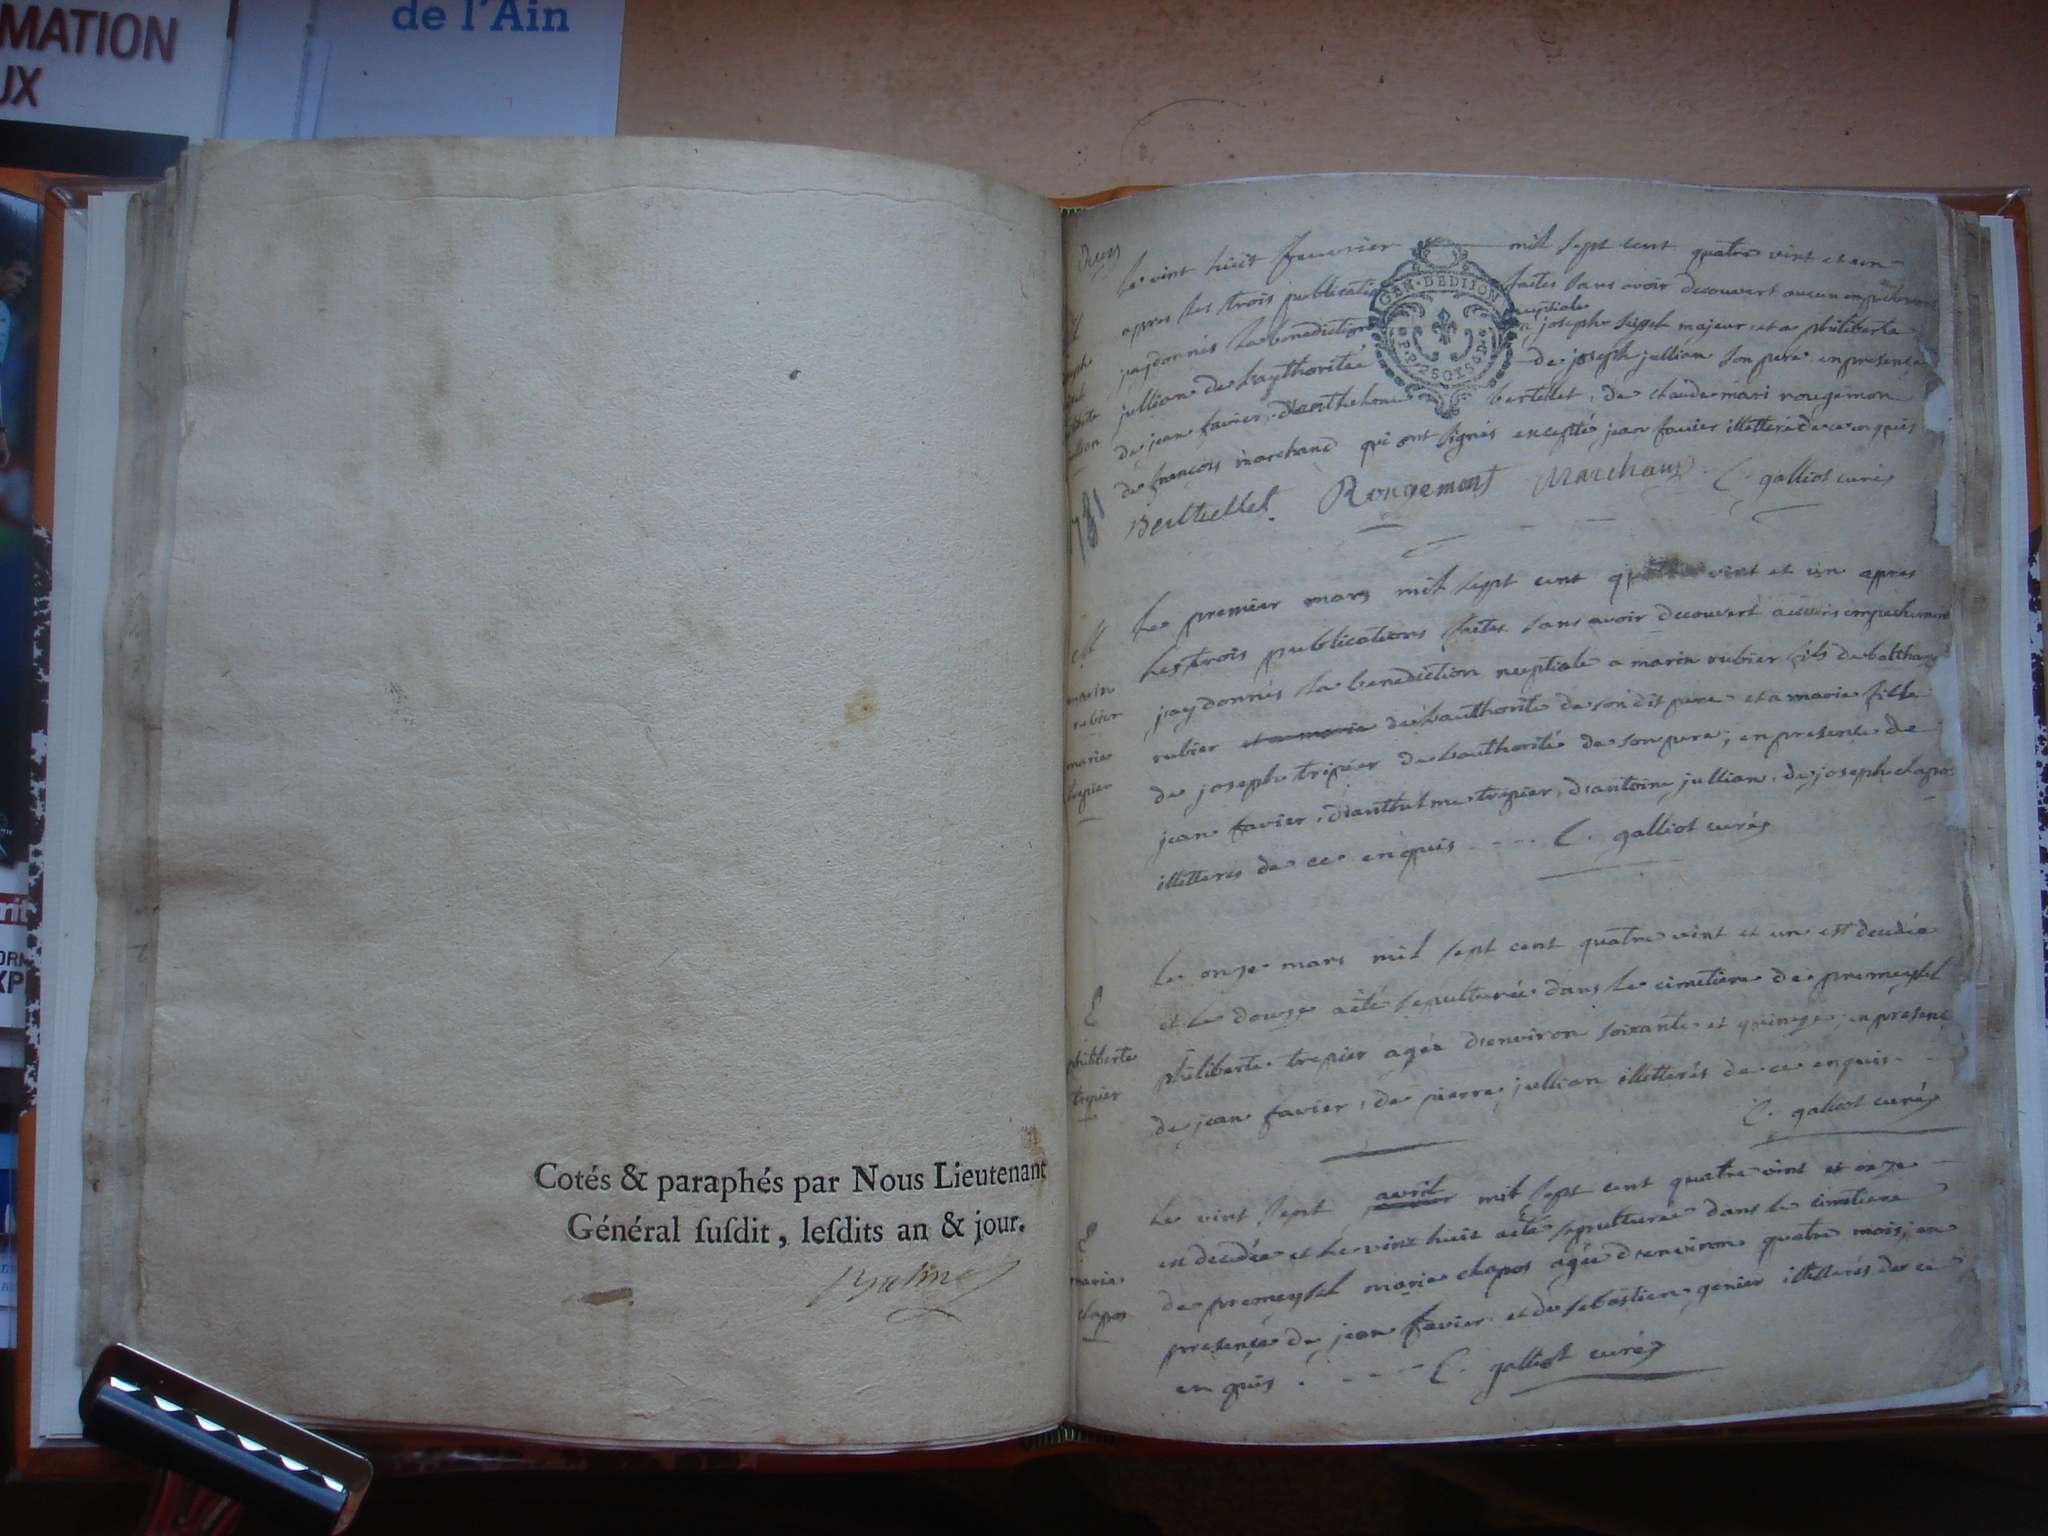 MATION
UX
de l'Ain
Cotés & paraphés par Nous Lieutenant
Général ſuſdit, leſdits an & jour.
le vint huit feuvrier mil sept cent quatre vint et un
apres les trois publications faites sans avoir decouvert aucun empechement
j'ay donnés la benediction nuptiale a joseph majeur et a philiberte
jullian de l'aythorité de joseph jullian son pere en presence
de jean favier, d'anthelme bertellet, de claude mari rougemon
de francois marchand qui ont signés excepté jean favier illetteré de ce enquis
GEN·DEDIJON
Berthellet Rougemont Marchand C. galliot curé
781
le premier mars mil sept cent quatre vint et un apres
les trois publications faites sans avoir decouvert aucuns empechement
j'ay donnés la benediction neuptiale a marin rubier fils de balthaz
rubier et a marie de l'authorité de son dit pere et a marie fille
de joseph tripier de l'authorité de son pere, en presence de
jean favier, d'anthelme trepier, d'antoine jullian, de joseph chapos
illetterés de ce enquis C. galliot curé
marin
rubier
marie
trepier
le onze mars mil sept cent quatre vint et un est decedée
et le douze a été sepulturée dans le cimetiere de premeyzel
philiberte trepier agée d'environ soixante et quinze, en presence
de jean favier, de pierre jullian illetterés de ce enquis
C. galliot curé
philiberte
trepier
le vint sept avril mil sept cent quatre vint et onze
en decedée et le vint huit a été sepulturée dans le cimetiere
de premeyzel marie chapos agée d'environ quatre mois, en
presence de jean favier et de sebastien genier illetterés de ce
enquis C. galliot curé
marie
chapos